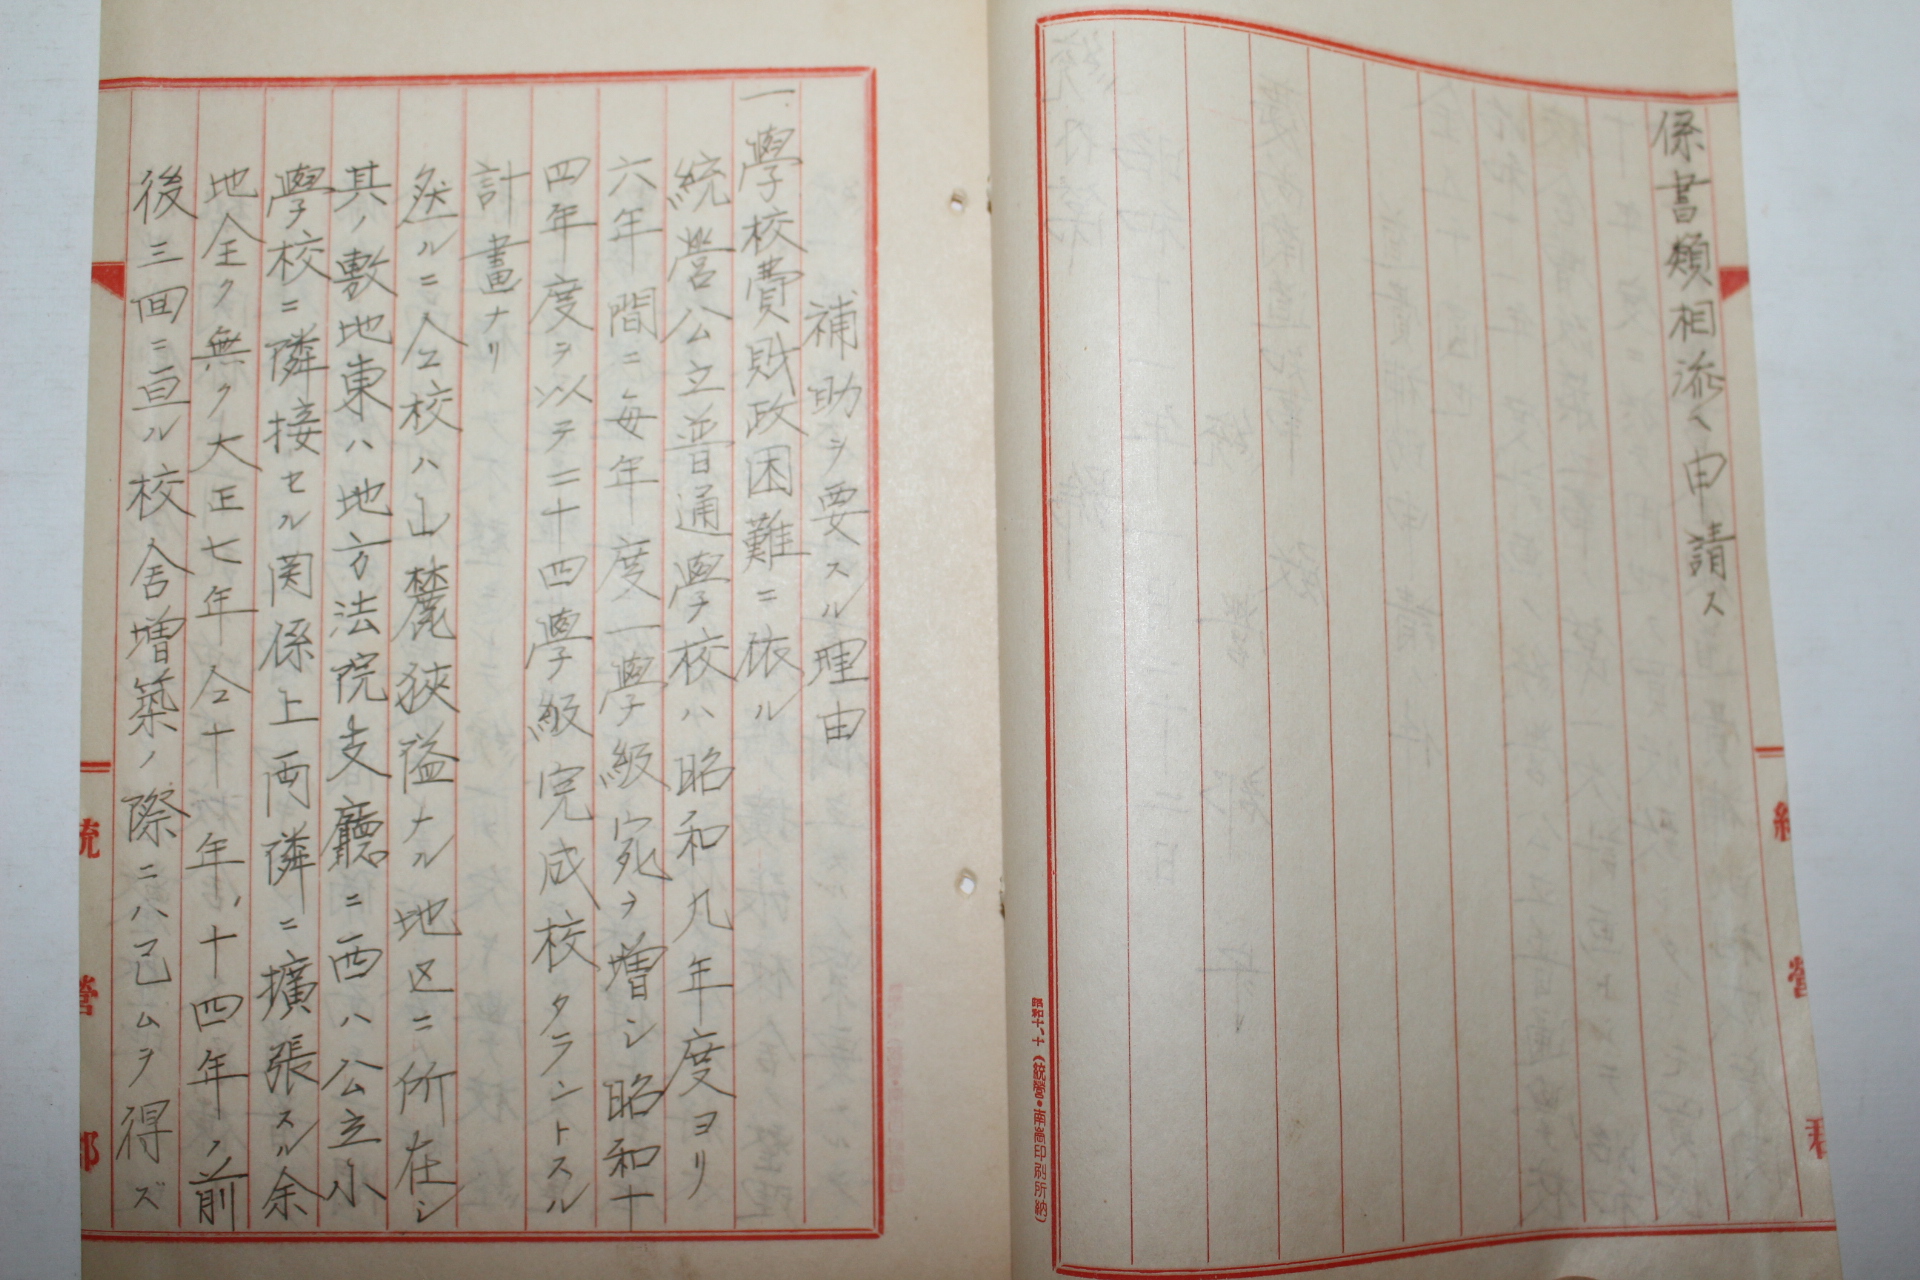 係書類相添ヘ申請ス
昭和十、十（統營・南嵩印刷所納）
補助ヲ要スル理由
一、學校費財政困難ニ依ル
統營公立普通學校ハ昭和九年度ヨリ
六年間ニ毎年度一學級宛ヲ増シ昭和十
四年度ヲ以テ二十四學級完成校タラントスル
計畫ナリ
然ルニ仝校ハ山麓狹隘ナル地区ニ所在シ
其ノ敷地東ハ地方法院支廳ニ西ハ公立小
學校ニ隣接セル関係上両隣ニ擴張スル余
地全ク無ク大正七年仝十年、十四年ノ前
後三回ニ亘ル校舎増築ノ際ニハ已ムヲ得ズ
統營郡